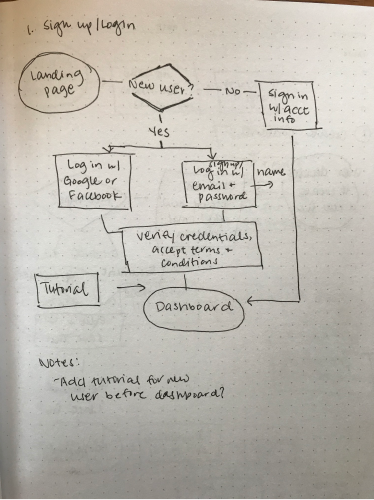 1. Sign up/Login
Landing
page
New user?
No
sign in
w/ acct
info
Yes
Log in w/
Google or
Facebook
sign up/
Log in w/
email +
password
name
verify credentials,
accept terms +
conditions
Tutorial
Dashboard
Notes:
-Add tutorial for new
user before dashboard?